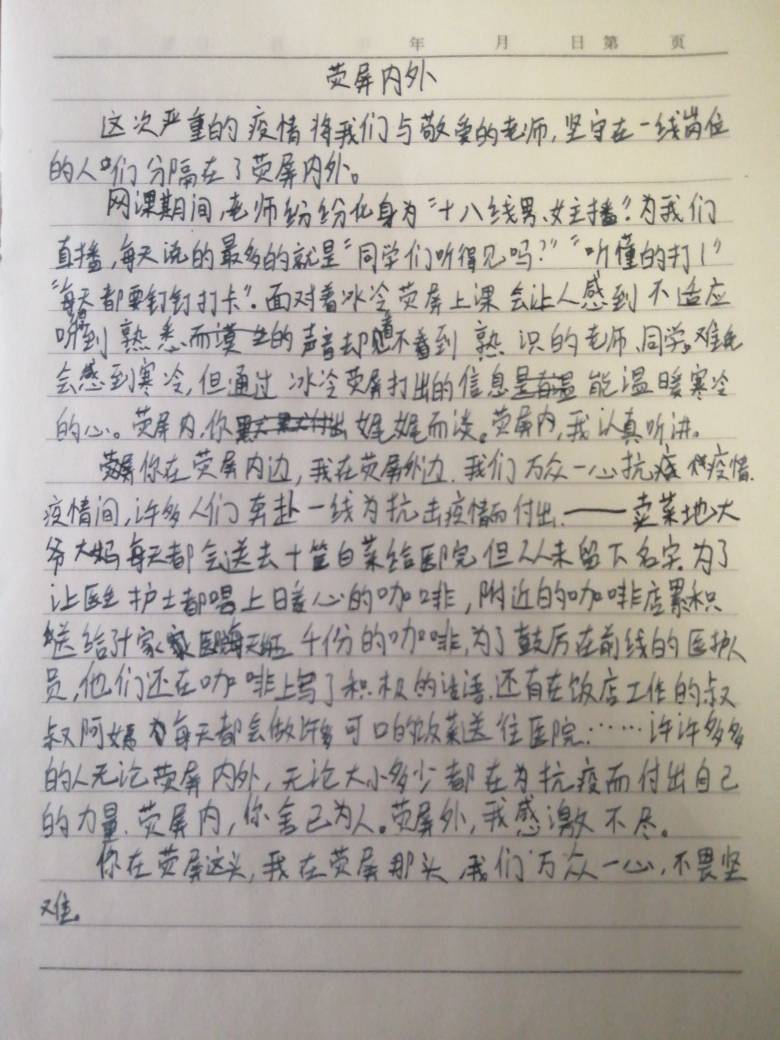 年 月 日 第 页
荧屏内外
这次严重的疫情将我们与敬爱的老师,坚守在一线岗位
的人们分隔在了荧屏内外。
网课期间,老师纷纷化身为“十八线男、女主播”为我们
直播,每天说的最多的就是“同学们听得见吗?”“听懂的打1”
“每天都要钉钉打卡”.面对着冰冷荧屏上课会让人感到不适应
听到熟悉而的声音却看不看到熟识的老师、同学。难免
会感到寒冷,但通过冰冷荧屏打出的信息是能温暖寒冷
的心。荧屏内,你娓娓而谈。荧屏内,我认真听讲。
你在荧屏内边,我在荧屏外边.我们万众一心抗疫情.
疫情间,许多人们奔赴一线为抗击疫情而付出.——卖菜地大
爷大妈每天都会送去十筐白菜给医院但从未留下名字.为了
让医生护士都喝上暖心的咖啡,附近的咖啡店累积
送给千份的咖啡,为了鼓厉在前线的医护人
员,他们还在咖啡上写了积极的话语.还有在饭店工作的叔
叔阿姨每天都会做许多可口的饭菜送往医院……许许多多
的人无论荧屏内外,无论大小多少都在为抗疫而付出自己
的力量.荧屏内,你舍己为人。荧屏外,我感激不尽。
你在荧屏这头,我在荧屏那头,我们万众一心,不畏坚
难。